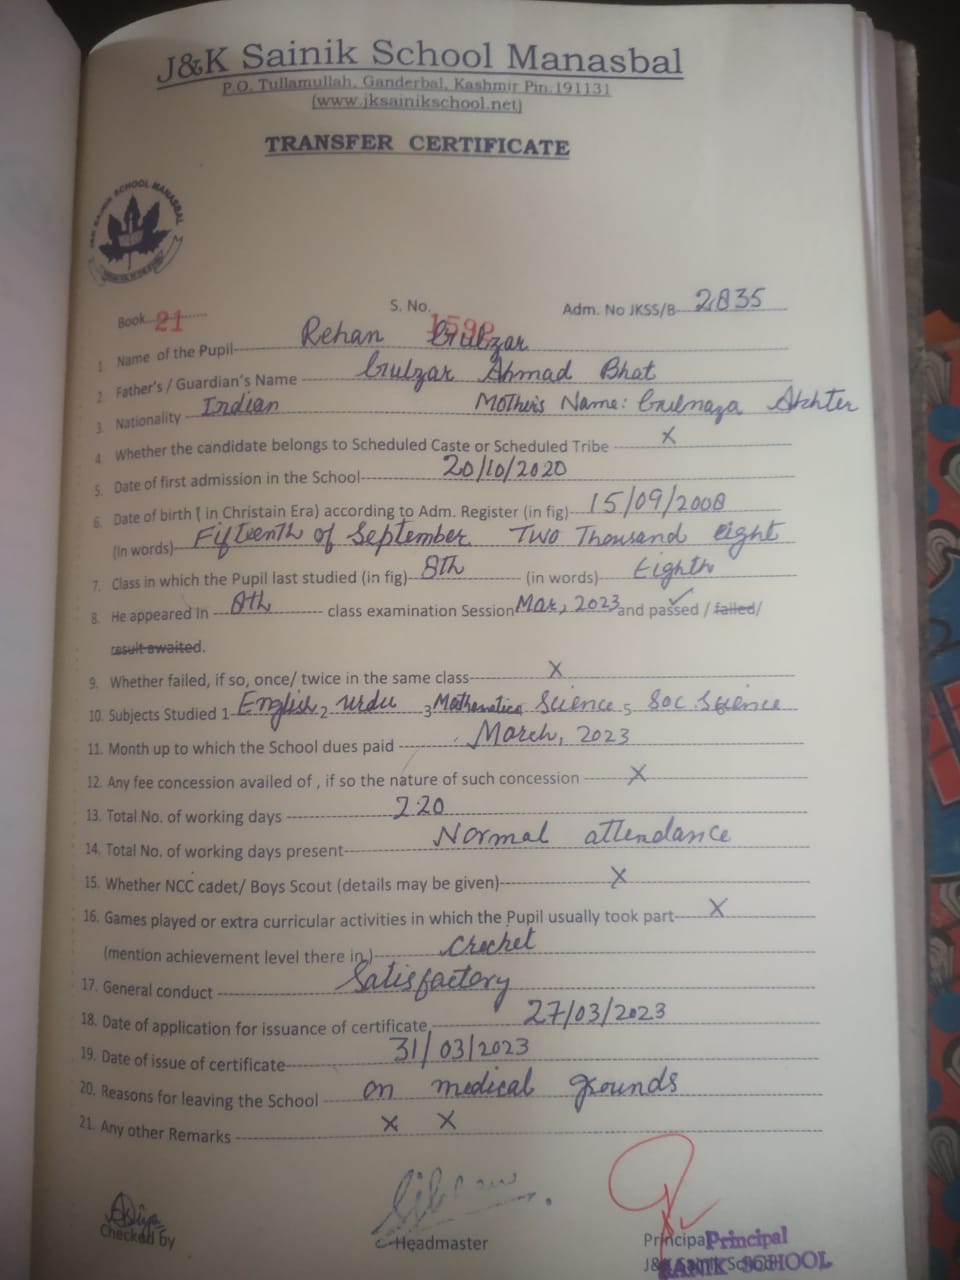 J&K Sainik School Manasbal
P.O. Tullamullah, Ganderbal, Kashmir Pin.191131
(www.jksainikschool.net)
TRANSFER CERTIFICATE
J&K SAINIK SCHOOL MANASBAL
Book 21 S. No. 1592 Adm. No JKSS/B 2835
1. Name of the Pupil Rehan Gulzar
2. Father's / Guardian's Name Gulzar Ahmad Bhat
3. Nationality Indian Mother's Name: Gulnaza Akhter
4. Whether the candidate belongs to Scheduled Caste or Scheduled Tribe X
5. Date of first admission in the School 20/10/2020
6. Date of birth ( in Christain Era) according to Adm. Register (in fig) 15/09/2008
(In words) Fifteenth of September Two Thousand eight
7. Class in which the Pupil last studied (in fig) 8th (in words) Eighth
8. He appeared In 8th class examination Session Mar, 2023 and passed / failed/
result awaited.
9. Whether failed, if so, once/ twice in the same class X
10. Subjects Studied 1 English 2 urdu 3 Mathematics Science 5 Soc. Science
11. Month up to which the School dues paid March, 2023
12. Any fee concession availed of , if so the nature of such concession X
13. Total No. of working days 220
14. Total No. of working days present Normal attendance
15. Whether NCC cadet/ Boys Scout (details may be given) X
16. Games played or extra curricular activities in which the Pupil usually took part X
(mention achievement level there in ) Crecket
17. General conduct Satisfactory
18. Date of application for issuance of certificate 27/03/2023
19. Date of issue of certificate 31/03/2023
20. Reasons for leaving the School on medical grounds
21. Any other Remarks X X
Checked by Headmaster Principal Principal
J&K Sainik School SANIK SCHOOL